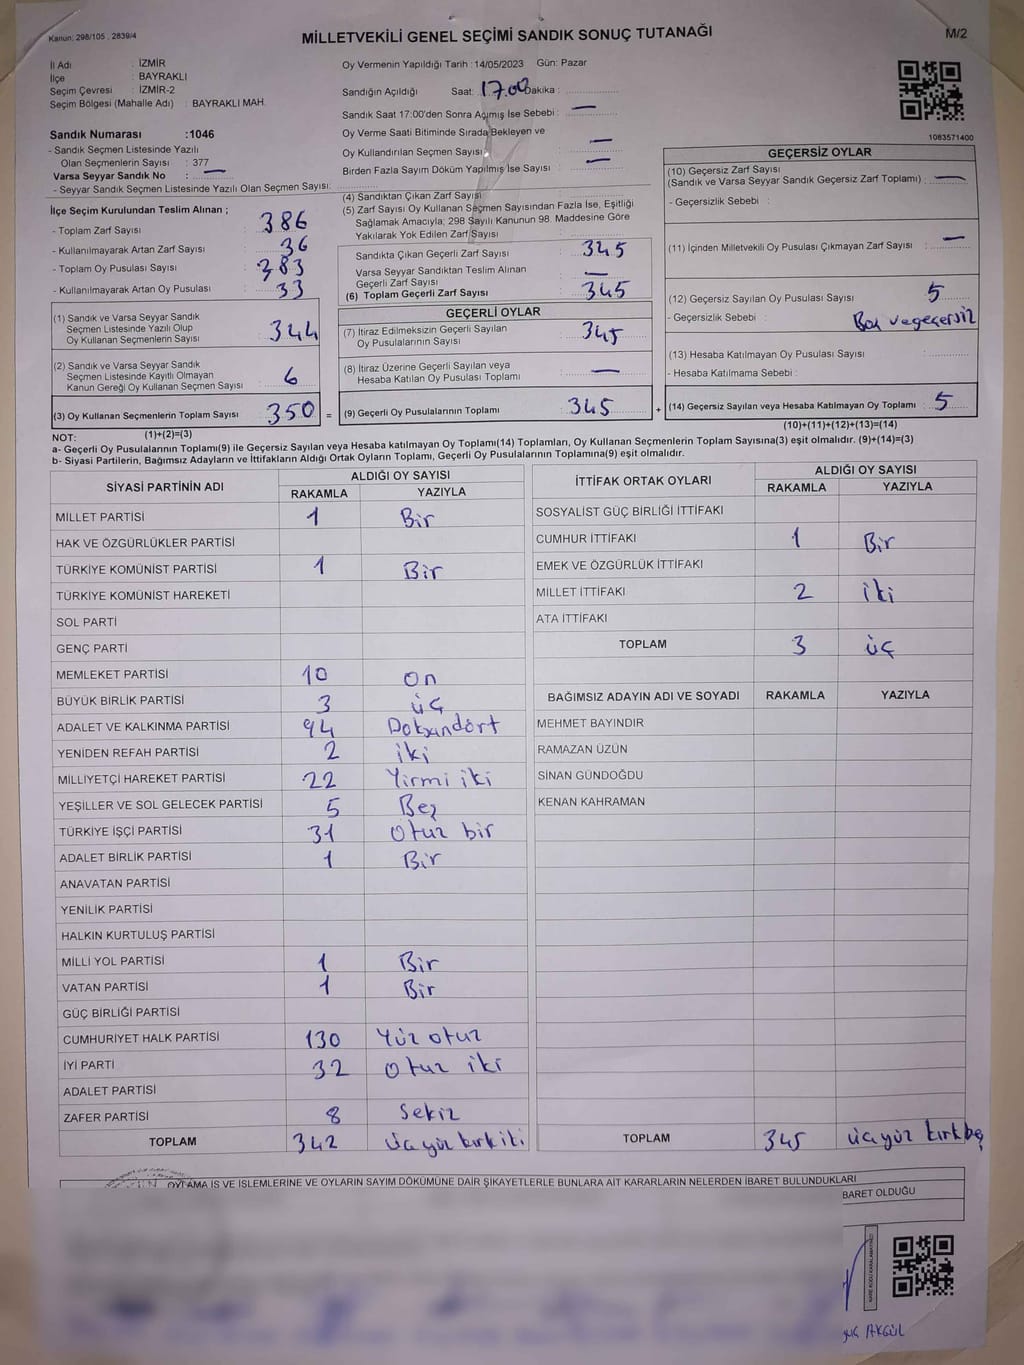 Kanun: 298/105 , 2839/4
MİLLETVEKİLİ GENEL SEÇİMİ SANDIK SONUÇ TUTANAĞI
M/2
İl Adı : İZMİR
İlçe : BAYRAKLI
Seçim Çevresi : İZMİR-2
Seçim Bölgesi (Mahalle Adı) : BAYRAKLI MAH.
Sandık Numarası :1046
- Sandık Seçmen Listesinde Yazılı
Olan Seçmenlerin Sayısı : 377
Varsa Seyyar Sandık No : —
- Seyyar Sandık Seçmen Listesinde Yazılı Olan Seçmen Sayısı:
Oy Vermenin Yapıldığı Tarih :14/05/2023 Gün: Pazar
Sandığın Açıldığı Saat: 17.00 Dakika :
Sandık Saat 17:00'den Sonra Açılmış İse Sebebi : —
Oy Verme Saati Bitiminde Sırada Bekleyen ve
Oy Kullandırılan Seçmen Sayısı : —
Birden Fazla Sayım Döküm Yapılmış İse Sayısı : —
1083571400
İlçe Seçim Kurulundan Teslim Alınan ;
- Toplam Zarf Sayısı : 386
- Kullanılmayarak Artan Zarf Sayısı : 36
- Toplam Oy Pusulası Sayısı : 383
- Kullanılmayarak Artan Oy Pusulası : 33
(1) Sandık ve Varsa Seyyar Sandık
Seçmen Listesinde Yazılı Olup
Oy Kullanan Seçmenlerin Sayısı : 344
(2) Sandık ve Varsa Seyyar Sandık
Seçmen Listesinde Kayıtlı Olmayan
Kanun Gereği Oy Kullanan Seçmen Sayısı : 6
(3) Oy Kullanan Seçmenlerin Toplam Sayısı 350 =
(1)+(2)=(3)
(4) Sandıktan Çıkan Zarf Sayısı
(5) Zarf Sayısı Oy Kullanan Seçmen Sayısından Fazla İse, Eşitliği
Sağlamak Amacıyla; 298 Sayılı Kanunun 98. Maddesine Göre
Yakılarak Yok Edilen Zarf Sayısı :
Sandıkta Çıkan Geçerli Zarf Sayısı : 345
Varsa Seyyar Sandıktan Teslim Alınan
Geçerli Zarf Sayısı : —
(6) Toplam Geçerli Zarf Sayısı : 345
GEÇERLİ OYLAR
(7) İtiraz Edilmeksizin Geçerli Sayılan
Oy Pusulalarının Sayısı : 345
(8) İtiraz Üzerine Geçerli Sayılan veya
Hesaba Katılan Oy Pusulası Toplamı : —
(9) Geçerli Oy Pusulalarının Toplamı : 345 +
GEÇERSİZ OYLAR
(10) Geçersiz Zarf Sayısı
(Sandık ve Varsa Seyyar Sandık Geçersiz Zarf Toplamı) : —
- Geçersizlik Sebebi :
(11) İçinden Milletvekili Oy Pusulası Çıkmayan Zarf Sayısı : —
(12) Geçersiz Sayılan Oy Pusulası Sayısı : 5
- Geçersizlik Sebebi : Boş ve geçersiz
(13) Hesaba Katılmayan Oy Pusulası Sayısı :
- Hesaba Katılmama Sebebi :
(14) Geçersiz Sayılan veya Hesaba Katılmayan Oy Toplamı : 5
(10)+(11)+(12)+(13)=(14)
NOT:
a- Geçerli Oy Pusulalarının Toplamı(9) ile Geçersiz Sayılan veya Hesaba katılmayan Oy Toplamı(14) Toplamları, Oy Kullanan Seçmenlerin Toplam Sayısına(3) eşit olmalıdır. (9)+(14)=(3)
b- Siyasi Partilerin, Bağımsız Adayların ve İttifakların Aldığı Ortak Oyların Toplamı, Geçerli Oy Pusulalarının Toplamına(9) eşit olmalıdır.
SİYASİ PARTİNİN ADI ALDIĞI OY SAYISI
RAKAMLA YAZIYLA
MİLLET PARTİSİ 1 Bir
HAK VE ÖZGÜRLÜKLER PARTİSİ
TÜRKİYE KOMÜNİST PARTİSİ 1 Bir
TÜRKİYE KOMÜNİST HAREKETİ
SOL PARTİ
GENÇ PARTİ
MEMLEKET PARTİSİ 10 On
BÜYÜK BİRLİK PARTİSİ 3 üç
ADALET VE KALKINMA PARTİSİ 94 Doksandört
YENİDEN REFAH PARTİSİ 2 iki
MİLLİYETÇİ HAREKET PARTİSİ 22 Yirmi iki
YEŞİLLER VE SOL GELECEK PARTİSİ 5 Beş
TÜRKİYE İŞÇİ PARTİSİ 31 Otuz bir
ADALET BİRLİK PARTİSİ 1 Bir
ANAVATAN PARTİSİ
YENİLİK PARTİSİ
HALKIN KURTULUŞ PARTİSİ
MİLLİ YOL PARTİSİ 1 Bir
VATAN PARTİSİ 1 Bir
GÜÇ BİRLİĞİ PARTİSİ
CUMHURİYET HALK PARTİSİ 130 Yüz otuz
İYİ PARTİ 32 Otuz iki
ADALET PARTİSİ
ZAFER PARTİSİ 8 Sekiz
TOPLAM 342 üçyüz kırk iki
İTTİFAK ORTAK OYLARI ALDIĞI OY SAYISI
RAKAMLA YAZIYLA
SOSYALİST GÜÇ BİRLİĞİ İTTİFAKI
CUMHUR İTTİFAKI 1 Bir
EMEK VE ÖZGÜRLÜK İTTİFAKI
MİLLET İTTİFAKI 2 iki
ATA İTTİFAKI
TOPLAM 3 üç
BAĞIMSIZ ADAYIN ADI VE SOYADI RAKAMLA YAZIYLA
MEHMET BAYINDIR
RAMAZAN ÜZÜN
SİNAN GÜNDOĞDU
KENAN KAHRAMAN
TOPLAM 345 üçyüz kırkbeş
OYLAMA İŞ VE İŞLEMLERİNE VE OYLARIN SAYIM DÖKÜMÜNE DAİR ŞİKAYETLERLE BUNLARA AİT KARARLARIN NELERDEN İBARET BULUNDUKLARI
BARET OLDUĞU
AKGÜL